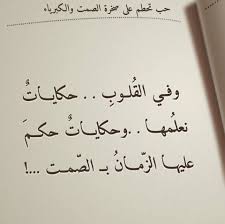 حب تحطم على صخرة الصمت والكبرياء
وفي القُلوبِ . . حكاياتٌ
نعلمُها . . وحكاياتٌ حكمَ
عليها الزّمانُ بـ الصّمت ...!